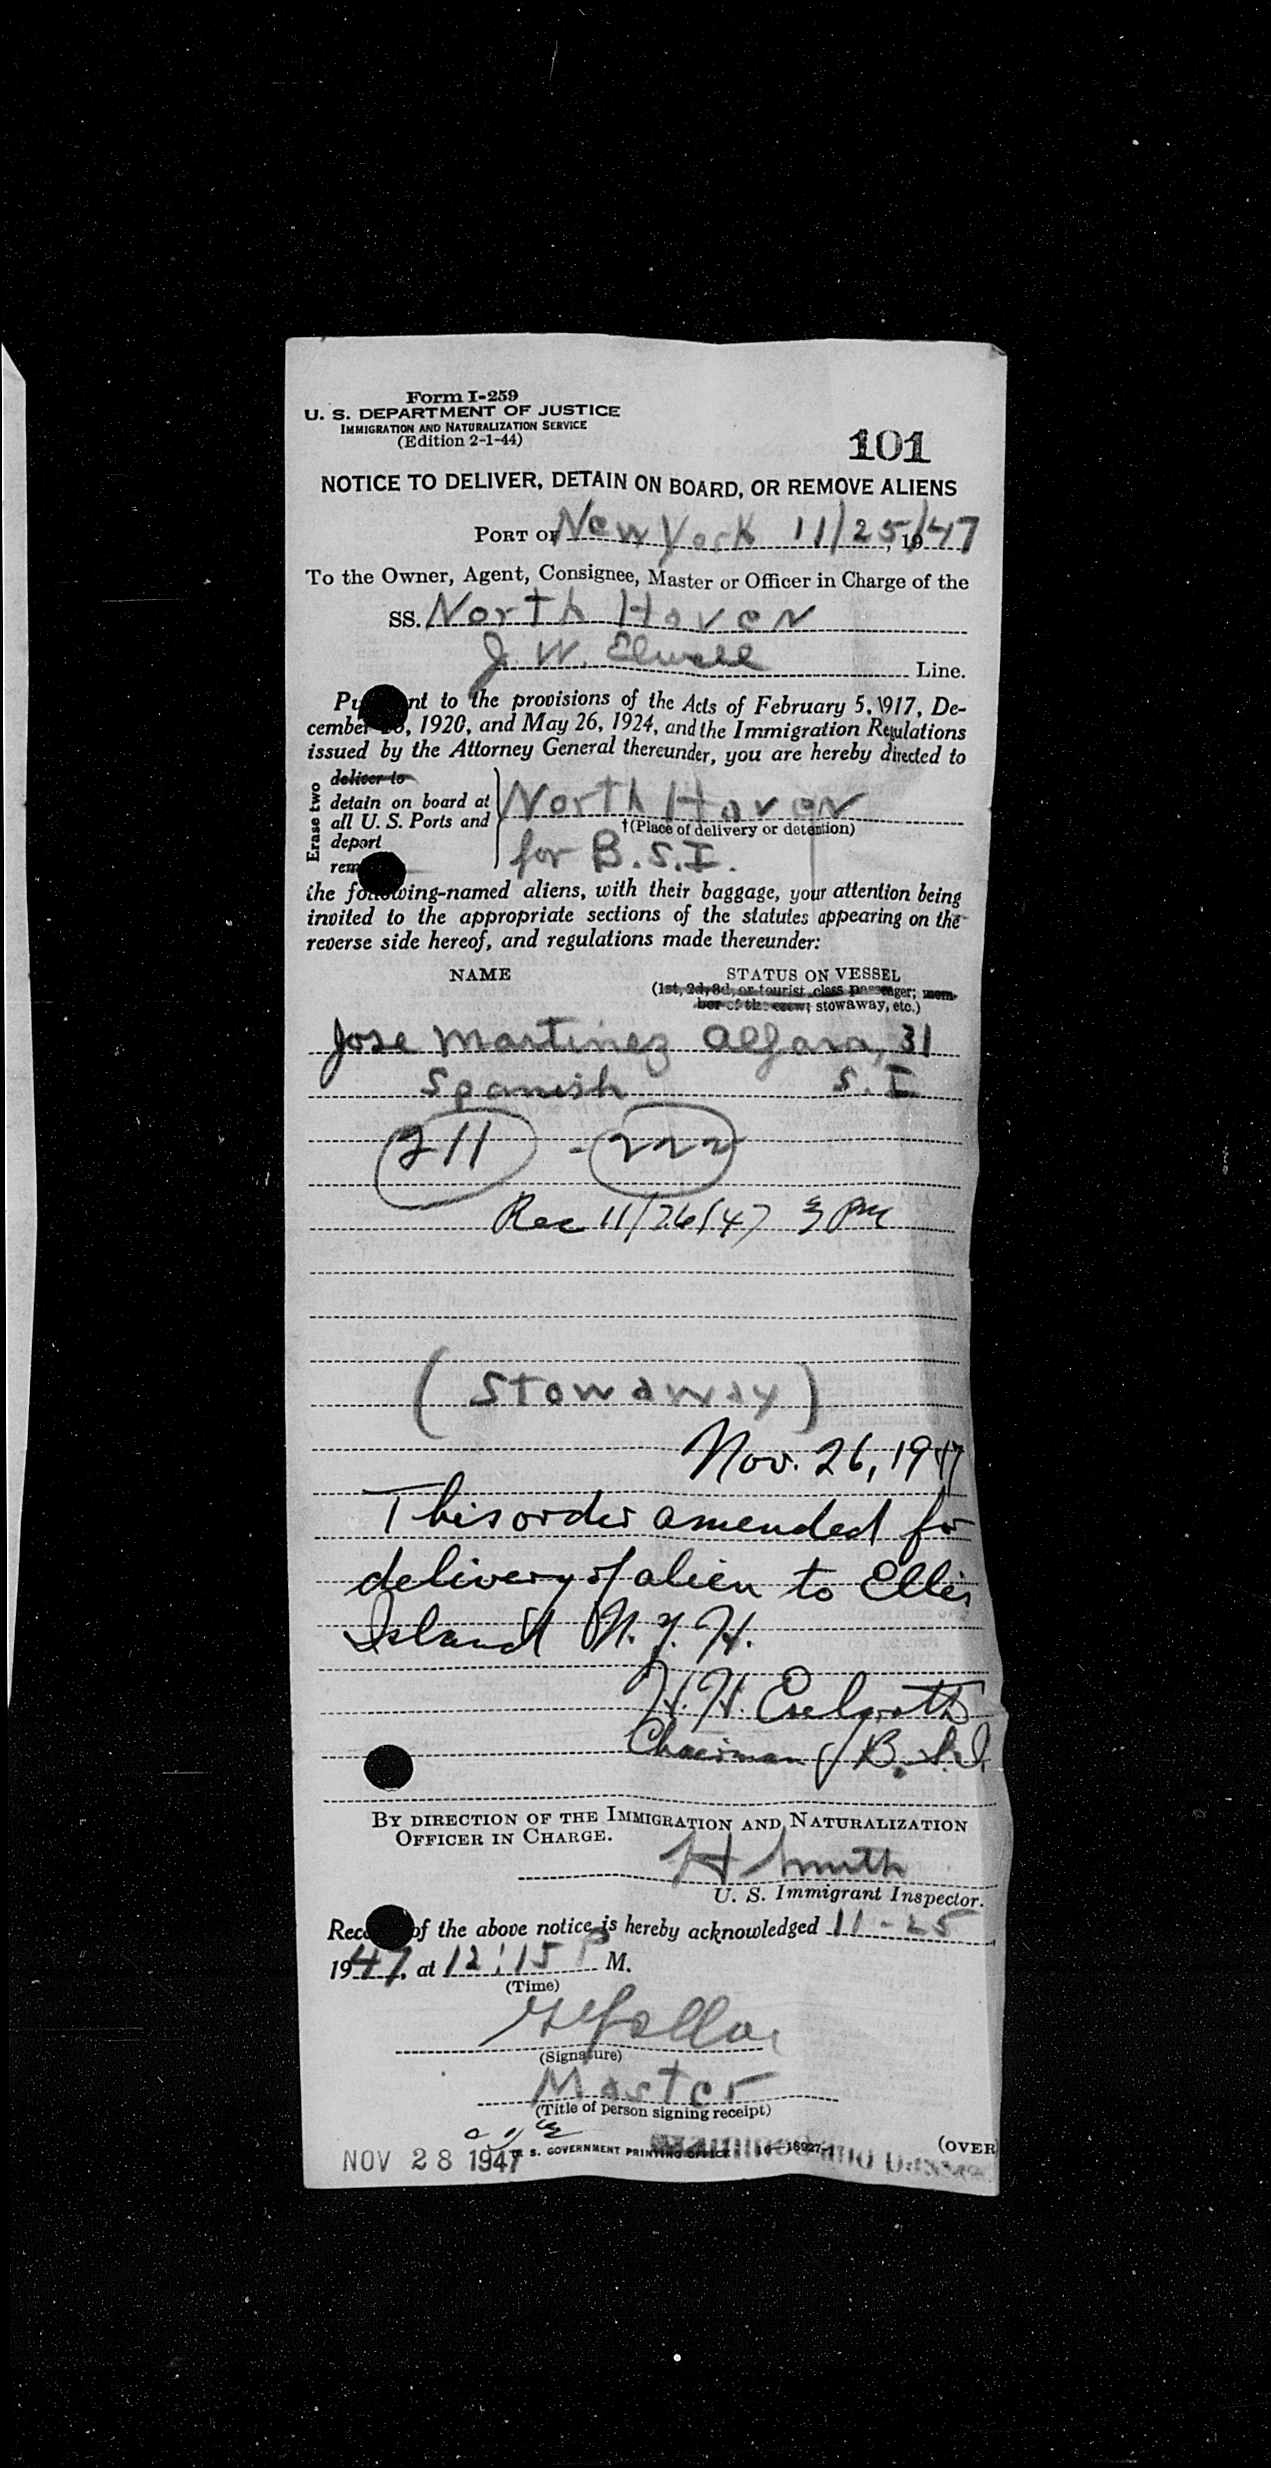 Form I-259
U. S. DEPARTMENT OF JUSTICE
IMMIGRATION AND NATURALIZATION SERVICE
(Edition 2-1-44)
101
NOTICE TO DELIVER, DETAIN ON BOARD, OR REMOVE ALIENS
PORT OF New York 11/25/, 1947
To the Owner, Agent, Consignee, Master or Officer in Charge of the
SS. North Haven
J. W. Elwell Line.
Pu nt to the provisions of the Acts of February 5, 1917, De-
cember , 1920, and May 26, 1924, and the Immigration Regulations
issued by the Attorney General thereunder, you are hereby directed to
Erase two
deliver to
detain on board at
all U. S. Ports and
deport
rem
North Haven
†(Place of delivery or detention)
for B.S.I.
the following-named aliens, with their baggage, your attention being
invited to the appropriate sections of the statutes appearing on the
reverse side hereof, and regulations made thereunder:
NAME STATUS ON VESSEL
(1st, 2d, 3d, or tourist class passenger; mem-
ber of the crew; stowaway, etc.)
Jose Martinez Alfara, 31
Spanish S.I
211 - 222
Rec 11/26/47 3 PM
(Stowaway)
Nov. 26, 1947
This order amended for
delivery of alien to Ellis
Island N.Y.H.
H.H.
Chairman of B.S.I.
BY DIRECTION OF THE IMMIGRATION AND NATURALIZATION
OFFICER IN CHARGE.
H Smith
U. S. Immigrant Inspector.
Rec of the above notice is hereby acknowledged 11-25
1947, at 12:15 P M.
(Time)
(Signature)
Master
(Title of person signing receipt)
NOV 28 1947 U. S. GOVERNMENT PRINTING OFFICE 16-18927-1 (OVER)